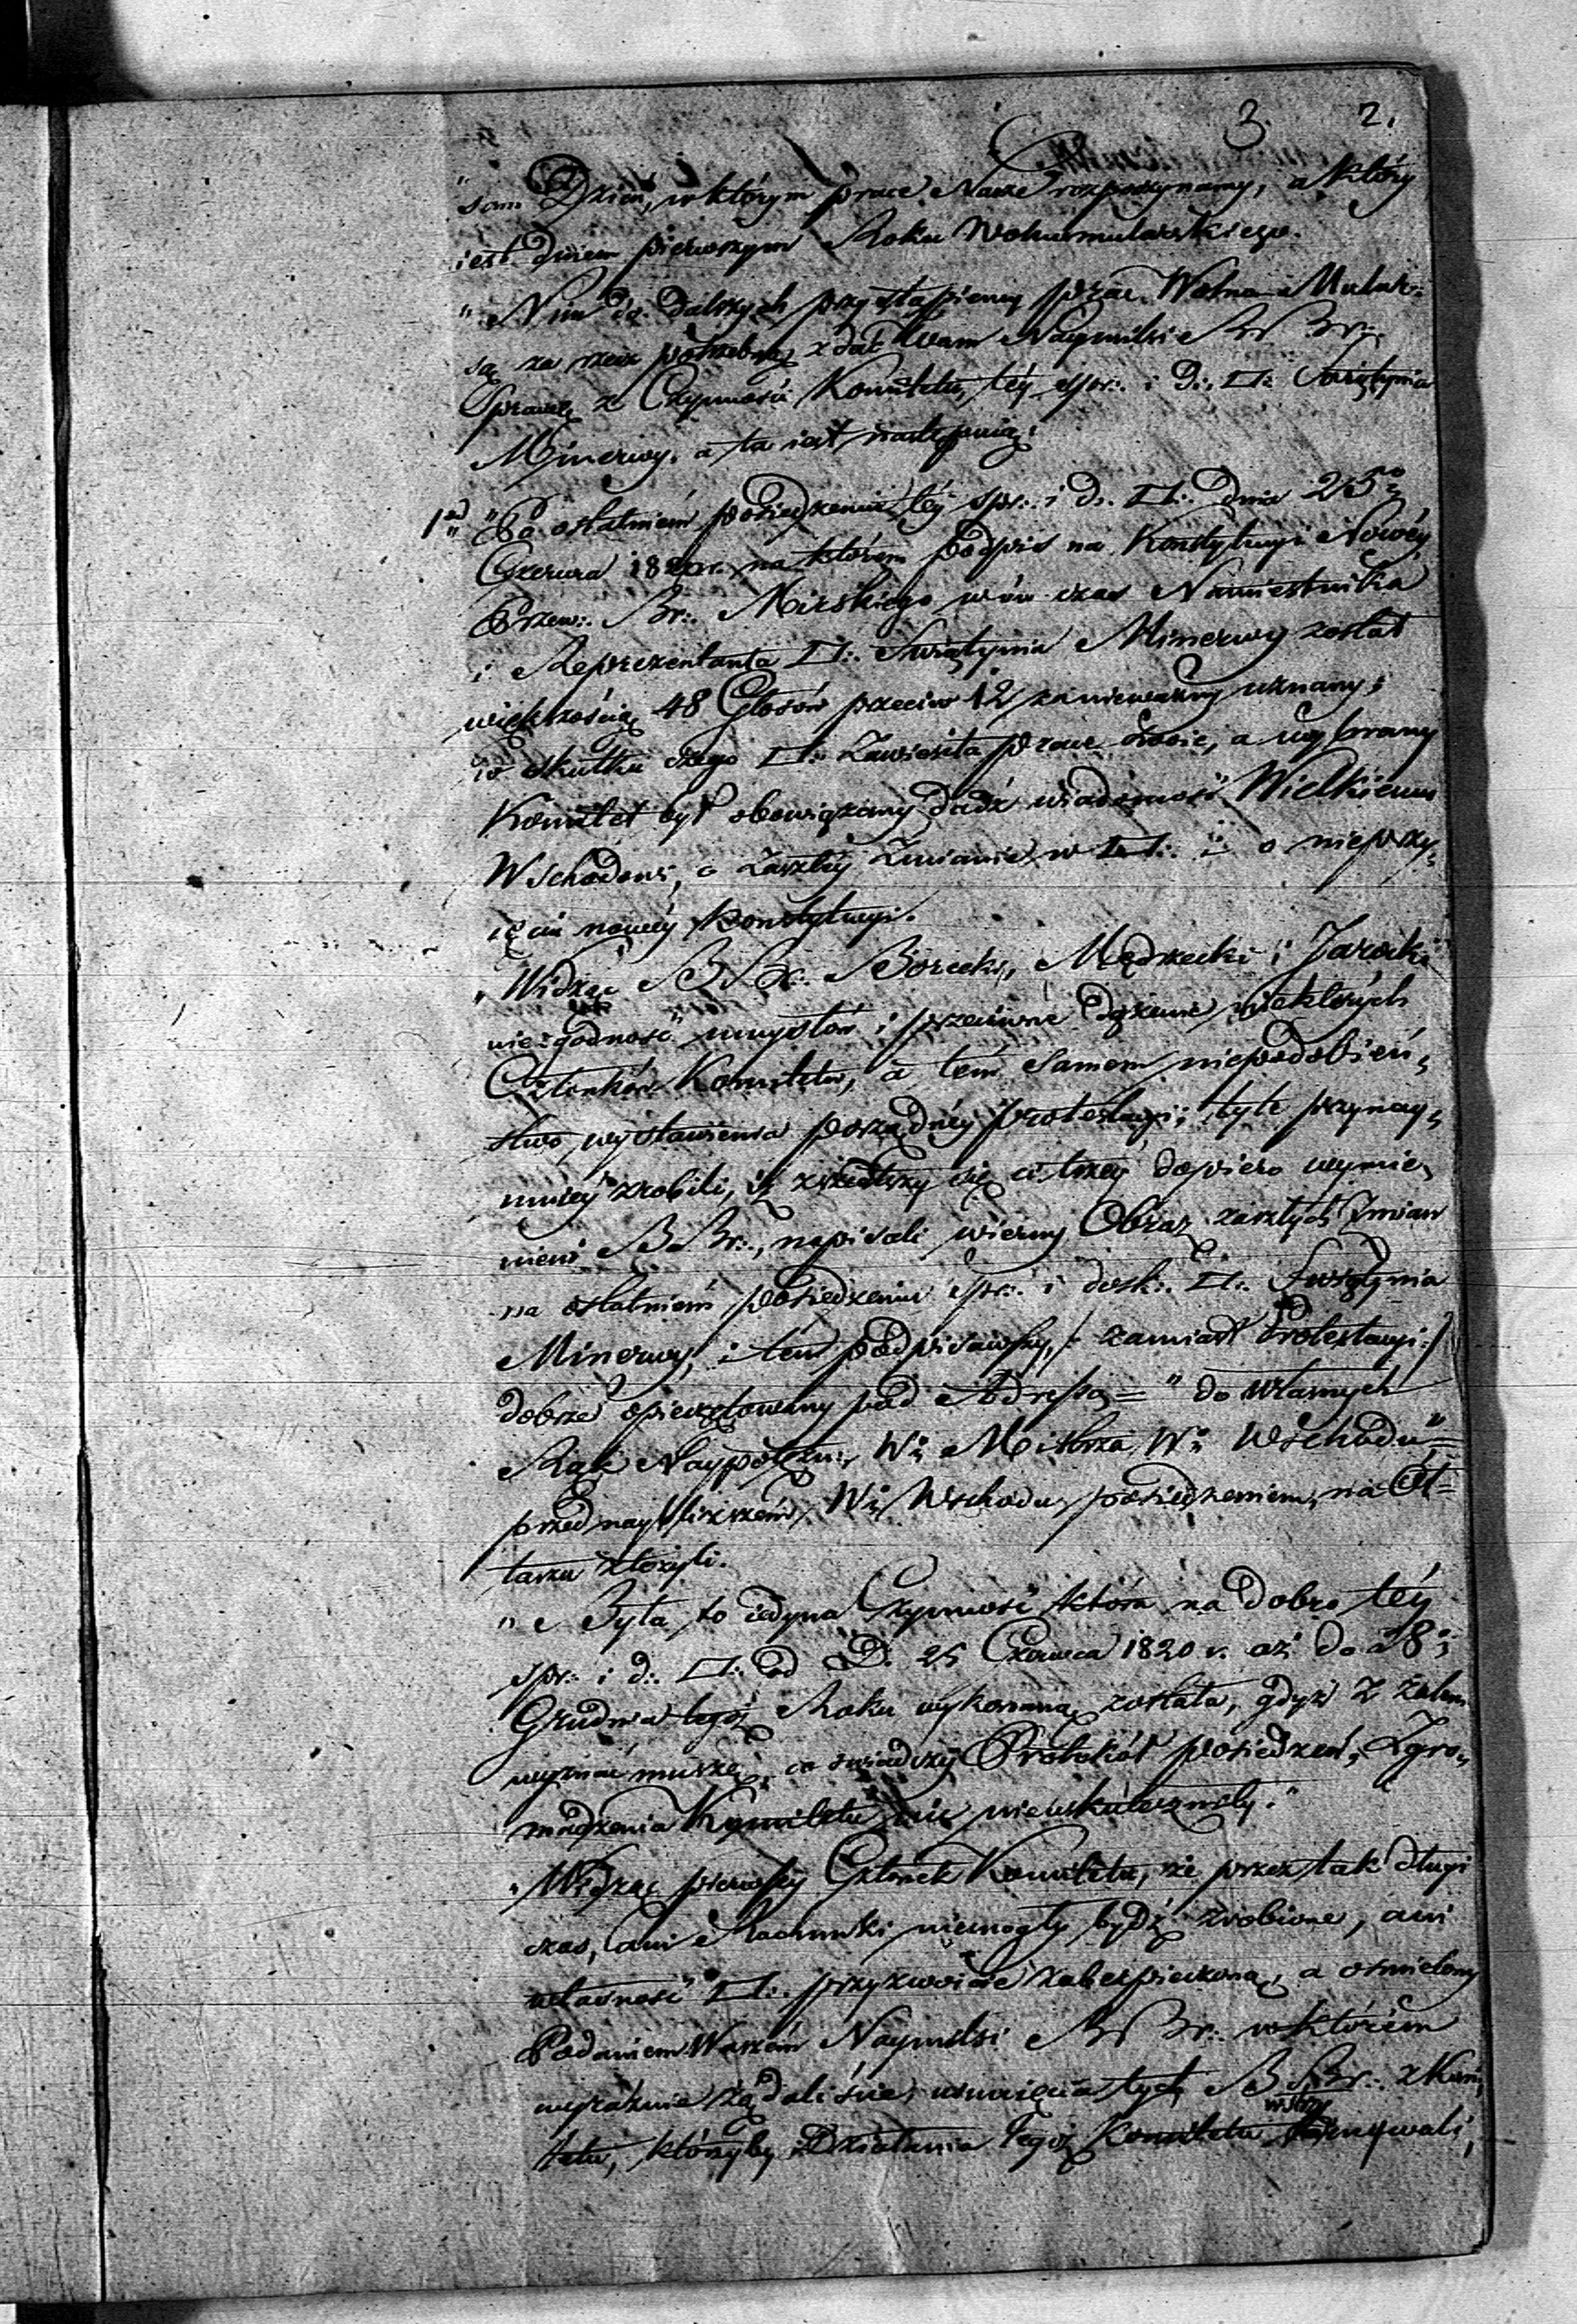 3. 2.
"sam Dzień, w którym prace Nasze rozpoczynamy, a który
iest dniem pierwszym Roku Wolnomularskiego.
"Nim do dalszych przystąpiemy prac Wolno-Mular:
są za rzecz potrzebną zdać Wam Naymilsi BBr:.
Sprawę z Czynności Komitetu, téy spr:. i D:. □:. Świątynia
Minerwy, a ta iest następuią:
1º "Po ostatniém posiedzeniu téy spr:. i d:. □:. dnia 25º
Czerwca 1820 r. na którém podpis na Konstytucyi Nowéy
Przew:. Br:. Mirskiego wów czas Namiestnika
i Reprezentanta □:. Świątynia Minerwy został
większością 48 Głosów przeciw 12 za nieważny uznany;
w skutku czego □:. Zawiesiła prace swoie, a wybrany
Komitet był obowiązany dadź wiadomość Wielkiemu
Wschodowi, o zaszłéy Zmianie w □:. i o nieprzy„
ięciu nowéy Konstytucyi.
"Widząc BBr:. Borecki, Mędrzecki i Jarocki
niezgodność umysłów i przeciwne dążenie niektórych
Członków Komitetu, a tém samem niepodobień„
stwo wystawienia porządnéy protestacyi; tyle przynay„
mniéy zrobili, iż zszedłszy się ci trzéy dopiero wymie„
nieni BBr:., napisali wierny Obraz zaszłych Zmian
na ostatniém posiedzeniu spr:. i dosk:. □:. Świątynia
Minerwy, i ten podpisawszy, /: zamiast Protestacyi :/
dobrze opieczętowany pod Adressą = "do własnych
Rąk Naypotężn: W: Mistrza W: Wschodu" =
przed naybliższém W: Wschodu posiedzeniem, na Oł=
tarzu złożyli.
"Była to iedyna Czynność która na dobro téy
spr:. i d:. □:. od D. 25 Czerwca 1820 r. aż do 28:
Grudnia tegoż Roku wykonaną została, gdyż z żalem
wyznać muszę, co świadczy Protokół posiedzeń, Zgro„
madzenia Komitetu nic nieuskuteczniły."
"Widząc pierwszy Członek Komitetu, że przez tak długi
czas, ani Rachunki niemogły bydź zrobione, ani
własność □:. przyzwoicie zabespieczona, a ośmielony
Podaniem Waszém Naymilsi BBr:. w którém
wyraźnie żądaliście, usunięcia tych BBr:. z Komi„
tetu, którzyby Działania Tegoż Komitetu wstrzymywali,